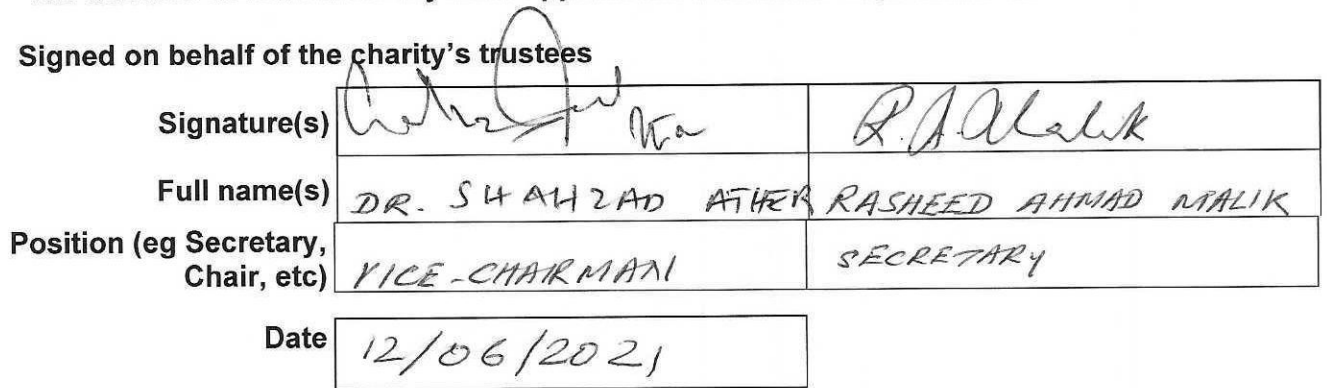 Signed on behalf of the charity's trustees
Signature(s) R.A.Malik
Full name(s) DR. SHAHZAD ATHER RASHEED AHMAD MALIK
Position (eg Secretary,
Chair, etc) VICE-CHARMAN SECRETARY
Date 12/06/2021